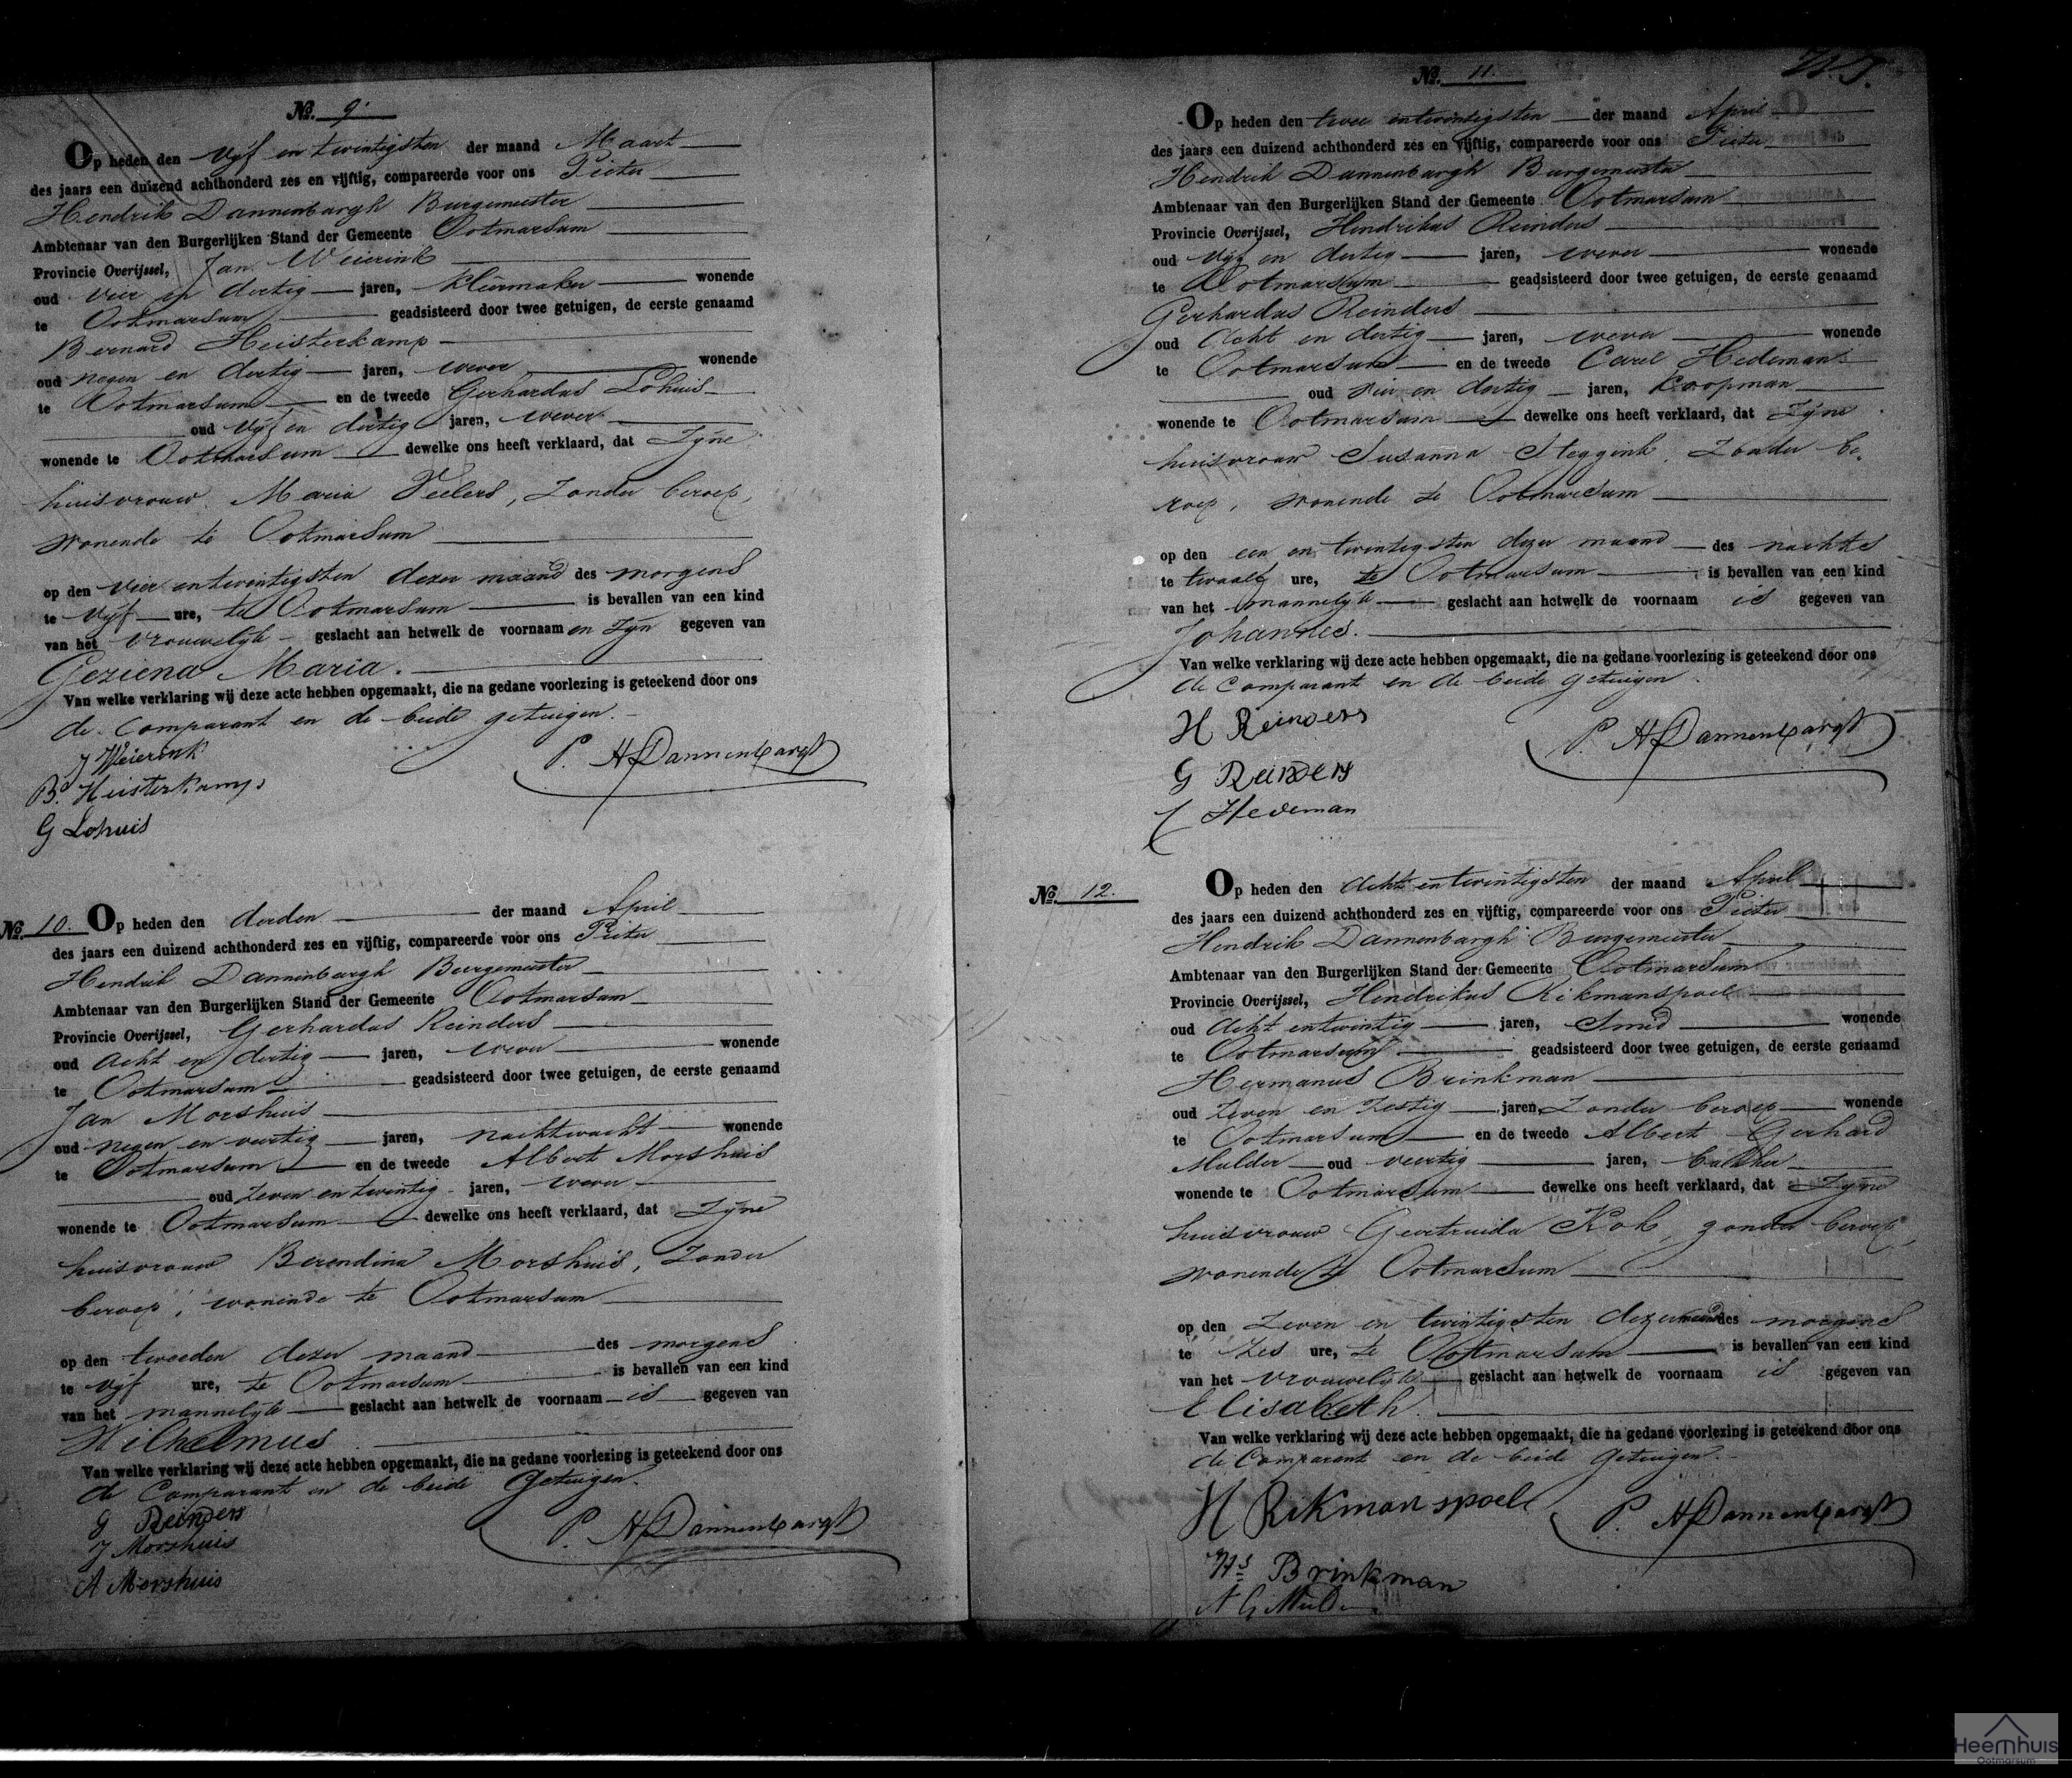 No. 9.
Op heden den vijf en twintigsten der maand Maart
des jaars een duizend achthonderd zes en vijftig, compareerde voor ons Pieter
Hendrik Dannenbargh Burgemeester
Ambtenaar van den Burgerlijken Stand der Gemeente Ootmarsum
Provincie Overijssel, Jan Weierink
oud vier en dertig jaren, kleermaker wonende
te Ootmarsum geadsisteerd door twee getuigen, de eerste genaamd
Bernard Heisterkamp
oud negen en dertig jaren, wever wonende
te Ootmarsum en de tweede Gerhardus Lohuis
oud vijf en dertig jaren, wever
wonende te Ootmarsum dewelke ons heeft verklaard, dat Zijne
huisvrouw Maria Veelers, zonder beroep,
wonende te Ootmarsum
op den vier en twintigsten dezer maand des morgens
te vijf ure, te Ootmarsum is bevallen van een kind
van het vrouwelijk geslacht aan hetwelk de voornaam en zijn gegeven van
Geziena Maria.
Van welke verklaring wij deze acte hebben opgemaakt, die na gedane voorlezing is geteekend door ons
de Comparant en de beide getuigen.
J Weierink
P. H Dannenbargh
Bd. Heisterkamp
G Lohuis
No. 10. Op heden den derden der maand April
des jaars een duizend achthonderd zes en vijftig, compareerde voor ons Pieter
Hendrik Dannenbargh Burgemeester
Ambtenaar van den Burgerlijken Stand der Gemeente Ootmarsum
Provincie Overijssel, Gerhardus Reinders
oud acht en dertig jaren, wever wonende
te Ootmarsum geadsisteerd door twee getuigen, de eerste genaamd
Jan Morshuis
oud negen en veertig jaren, nachtwacht wonende
te Ootmarsum en de tweede Albert Morshuis
oud zeven en twintig jaren, wever
wonende te Ootmarsum dewelke ons heeft verklaard, dat Zijne
huisvrouw Berendina Morshuis, zonder
beroep, wonende te Ootmarsum
op den tweeden dezer maand des morgens
te vijf ure, te Ootmarsum is bevallen van een kind
van het mannelijk geslacht aan hetwelk de voornaam is gegeven van
Wilhelmus.
Van welke verklaring wij deze acte hebben opgemaakt, die na gedane voorlezing is geteekend door ons
de Comparant en de beide Getuigen.
G Reinders
J Morshuis
P. H Dannenbargh
A Morshuis
No. 11.
Op heden den twee en twintigsten der maand April
des jaars een duizend achthonderd zes en vijftig, compareerde voor ons Pieter
Hendrik Dannenbargh Burgemeester
Ambtenaar van den Burgerlijken Stand der Gemeente Ootmarsum
Provincie Overijssel, Hendrikus Reinders
oud vijf en dertig jaren, wever wonende
te Ootmarsum geadsisteerd door twee getuigen, de eerste genaamd
Gerhardus Reinders
oud Acht en dertig jaren, wever wonende
te Ootmarsum en de tweede Carel Hedeman
oud vier en dertig jaren, Koopman
wonende te Ootmarsum dewelke ons heeft verklaard, dat Zijne
huisvrouw Susanna Steggink, zonder be-
roep, wonende te Ootmarsum
op den een en twintigsten dezer maand des nachts
te twaalf ure, te Ootmarsum is bevallen van een kind
van het mannelijk geslacht aan hetwelk de voornaam is gegeven van
Johannes.
Van welke verklaring wij deze acte hebben opgemaakt, die na gedane voorlezing is geteekend door ons
de Comparant en de beide Getuigen.
H Reinders
P. H Dannenbargh
G Reinders
C Hedeman
No. 12. Op heden den Acht en twintigsten der maand April
des jaars een duizend achthonderd zes en vijftig, compareerde voor ons Pieter
Hendrik Dannenbargh Burgemeester
Ambtenaar van den Burgerlijken Stand der Gemeente Ootmarsum
Provincie Overijssel, Hendrikus Rikmanspoel
oud Acht en twintig jaren, Smid wonende
te Ootmarsum geadsisteerd door twee getuigen, de eerste genaamd
Hermanus Brinkman
oud zeven en zestig jaren, zonder beroep wonende
te Ootmarsum en de tweede Albert Gerhard
Mulder oud veertig jaren, bakker
wonende te Ootmarsum dewelke ons heeft verklaard, dat Zijne
huisvrouw Geertruida Kok, zonder beroep,
wonende te Ootmarsum
op den zeven en twintigsten dezer maand des morgens
te zes ure, te Ootmarsum is bevallen van een kind
van het vrouwelijk geslacht aan hetwelk de voornaam is gegeven van
Elisabeth.
Van welke verklaring wij deze acte hebben opgemaakt, die na gedane voorlezing is geteekend door ons
de Comparant en de beide Getuigen.
H Rikmanspoel
P. H Dannenbargh
Hs Brinkman
A G Mulder
Heemhuis
Ootmarsum